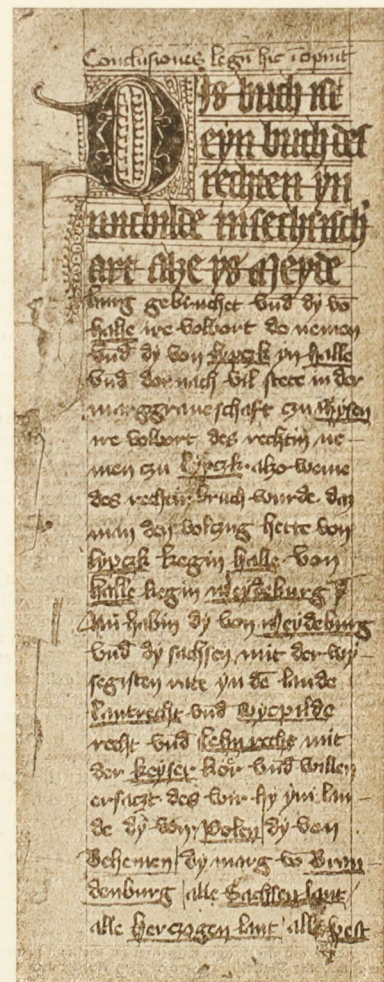 Conclusiones legū hic īcipiūt
Dis buch ist
eyn buch des
rechten yn
wichbilde in sechsisch
art alze ys Meyde
burg gebruchet vnd dy vo
halle ire volbort do nemen
vnd dy von lypczk yn halle
vnd dor nach vil stete in der
marggraueschaft czu Mysen
ire volbort des rechtin ne-
men czu Lypczk. alzo wenne
des rechtin bruch wurde. daz
man den volczug hette von
lypczk kegin halle. von
halle kegin Meydeburg
Nu habin dy von Meydeburg
vnd dy sachssen mit der wy-
segisten rate yn dē lande
lantrecht vnd wycpilde
recht vnd lehnrecht mit
der keyser kor vnd willen
ersaczt des wir hy ym lan-
de dy von Polen dy von
Behemen dy marg vo Bran
denburg alle Sachssen lant
alle herczogen lant alle west